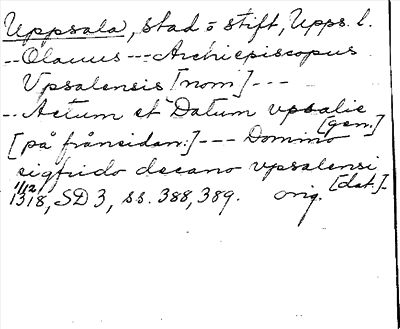 Uppsala, stad o stift, Upps. l.
-- Olauus --- Archiepiscopus
Vpsalensis [nom.] ---
-- Actum et Datum vpsalie
[gen.]
[på frånsidan:] --- Domino
sigfrido decano vpsalensi
[dat.]-
1/12
1318, SD 3, ss. 388, 389. orig.